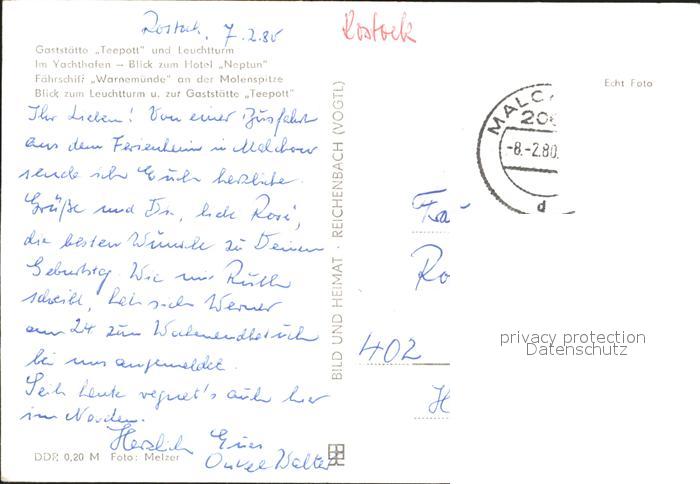 Rostock, 7.2.80
Rostock
Gaststätte „Teepott" und Leuchtturm
Im Yachthafen – Blick zum Hotel „Neptun"
Fährschiff „Warnemünde" an der Molenspitze
Blick zum Leuchtturm u. zur Gaststätte „Teepott"
Echt Foto
Ihr Lieben! Von einer Busfahrt
aus dem Ferienheim in Malchow
sende ich Euch herzliche
Grüße und Dir, liebe Rosi,
die besten Wünsche zu Deinem
Geburtstag. Wie mir Ruth
schreibt, hat sich Werner
am 24. zum Wochenendbesuch
bei uns angemeldet.
Seit heute regnet's auch hier
im Norden.
Herzlich Euer
Onkel Walter
DDR 0,20 M Foto: Melzer
BILD UND HEIMAT · REICHENBACH (VOGTL)
MALC
20
-8.-2.80.
d
Fra
Ro
402
H
privacy protection
Datenschutz